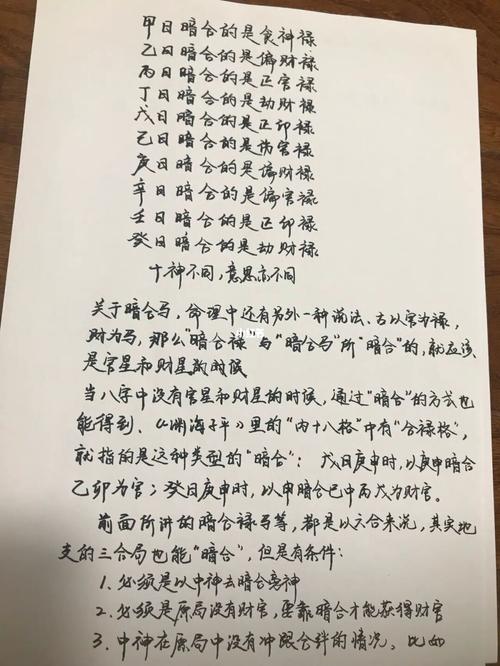 甲日暗合的是食神禄
乙日暗合的是偏财禄
丙日暗合的是正官禄
丁日暗合的是劫财禄
戊日暗合的是正印禄
己日暗合的是伤官禄
庚日暗合的是偏财禄
辛日暗合的是偏官禄
壬日暗合的是正印禄
癸日暗合的是劫财禄
十神不同，意思亦不同
关于暗合马，命理中还有另外一种说法、古以官为禄，
财为马，那么"暗合禄"与"暗合马"所"暗合"的，就应该
是官星和财星的时候
当八字中没有官星和财星的时候，通过"暗合"的方式也
能得到、《渊海子平》里的"内十八格"中有"合禄格"，
就指的是这种类型的"暗合"： 戊日庚申时，以庚申暗合
乙卯为官；癸日庚申时，以申暗合巳中丙戊为财官。
前面所讲的暗合禄马等，都是以六合来说，其实地
支的三合局也能"暗合"，但是有条件：
1、必须是以中神去暗合旁神
2、必须是原局没有财官，要靠暗合才能获得财官
3、中神在原局中没有冲跟合绊的情况。比如